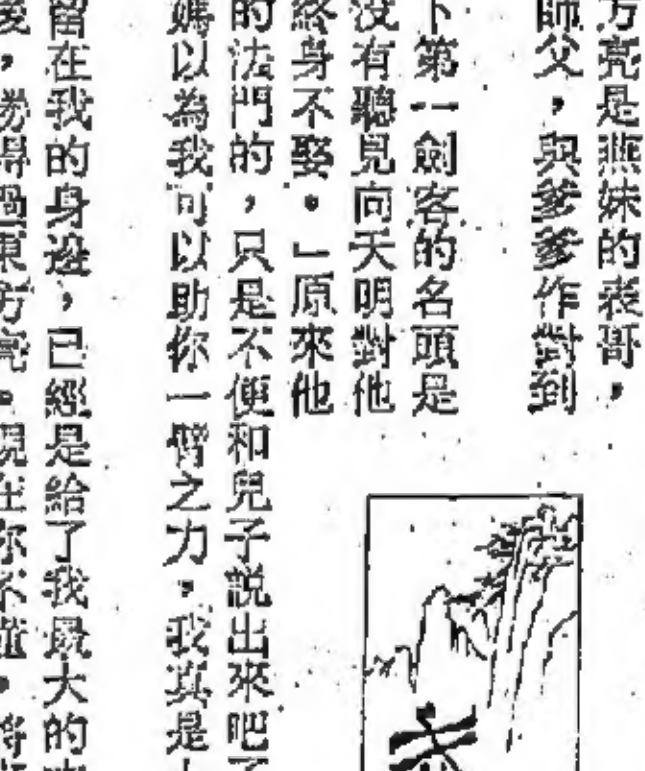 方亮是燕妹的表哥，
師父，與爹爹作對到
下第一劍客的名頭是
沒有聽見向天明對他
終身不娶。」原來他
的法門的，只是不便和兒子說出來吧了
媽以為我可以助你一臂之力，我真是
留在我的身邊，已經是給了我最大的
後，勝得過東方亮。現在你不